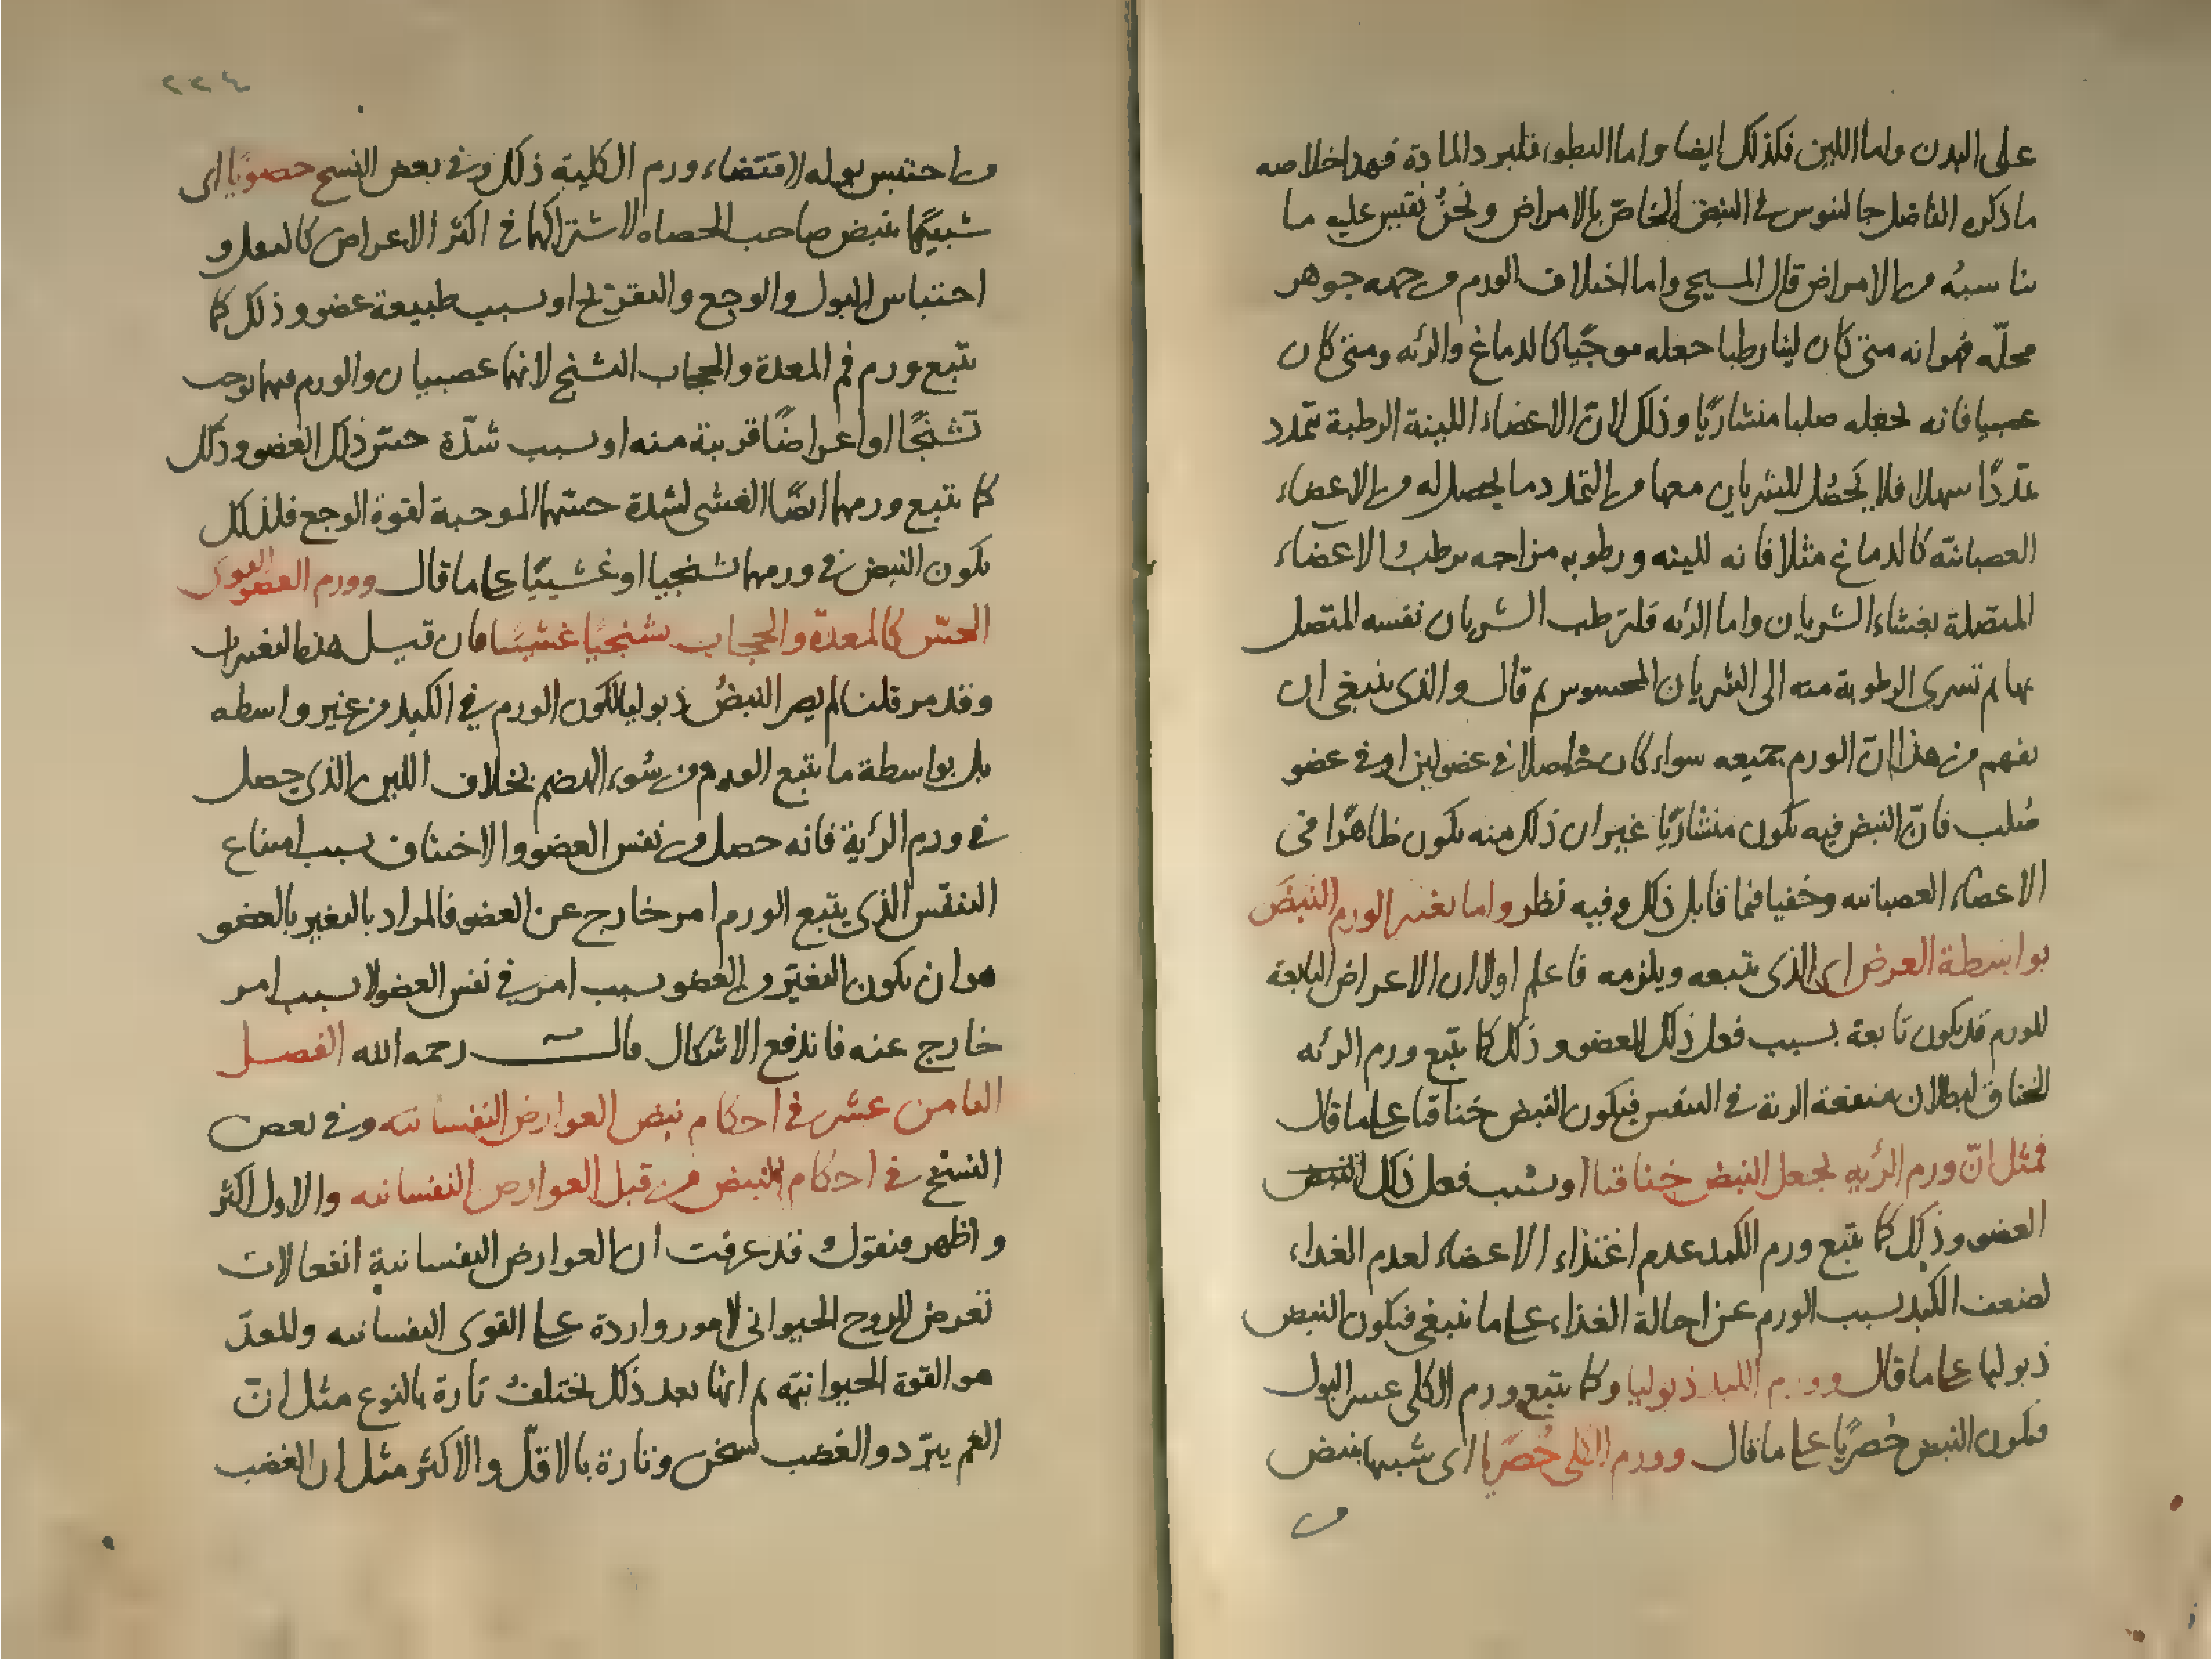 على البدن واما اللين فكذلك ايضا واما البطو فلبرد المادة فهذا خلاصه
ما ذكره الفاضل جالنوس في النبض الخاصّ بالامراض ونحنُ نقيس عليه ما
يناسبُه من الامراض قال المسيحي واما اختلاف الورم من جهه جوهر
محلّه فهو انه متى كان لينا رطبا جعله موجيًا كالدماغ والرئه ومتى كان
عصبيا فانه يجعله صلبا منشاريًا وذلك لانّ الاعضاء اللينة الرطبة تتمدد
تمدّدًا سهلا فلا يحصُل للشريان معها من التمدد ما يحصل له من الاعضاء
العصبانيّه كالدماغ مثلا فانه للينه ورطوبه مزاجه يرطب الاعضاء
المتصلة بغشاء الشريان واما الرئه فلترطب الشريان نفسه المتصل
بها ثم تسرى الرطوبة منه الى الشريان المحسوس ثم قال والذى ينبغى ان
يفهم من هذا انّ الورم جميعه سواء كان حاصلا في عضو لين او في عضو
صُلب فانّ النبض فيه يكون منشاريًا غير ان ذلك منه يكون ظاهرًا في
الاعضاء العصبانيه وخفيا فيما قابل ذلك وفيه نظر واما تغيير الورم النبضَ
بواسطة العرض اى الذى يتبعه ويلزمه فاعلم اولا ان الاعراض التابعة
للورم قد يكون تابعة بسبب فعل ذلك العضو وذلك كما يتبع ورم الرئه
الخناق لبطلان منفعة الرئة في التنفس فيكون النبض خناقيا على ما قال
فمثل انّ ورم الرئيه يجعل النبض خناقيا او بسبب فعل ذلك النبض
العضو وذلك كما يتبع ورم الكبد عدم اغتذاء الاعضاء لعدم الغذاء
لضعف الكبد بسبب الورم عن احالة الغذاء على ما ينبغي فيكون النبض
ذبوليا على ما قال وورم الكبد ذبوليا وكما يتبع ورم الكلى عسر البول
فيكون النبض حُصريًا على ما قال وورم الكلى حُصَريا اى شبيها بنبض
من
من احتبس بوله لاقتضاء ورم الكلية ذلك وفي بعض النسخ حصويًا اى
شبيهًا بنبض صاحب الحصاه لاشتراكهما في اكثر الاعراض كالثقل و
احتباس البول والوجع والتقريح او بسبب طبيعة عضو وذلك كما
يتبع ورم فم المعدة والحجاب التشنج لانهما عصبيان والورم فيهما يوجب
تشنجًا او اعراضًا قريبة منه او بسبب شدّة حسّ ذلك العضو وذلك
كما يتبع ورمهما ايضًا الغشى لشدة حسّهما الموجبة لقوة الوجع فلذلك
يكون النبض في ورمهما تشنجيا او غشييًا على ما قال وورم العضو القوى
الحسّ كالمعدة والحجاب تشنجيًا غشييًا فان قيل هذا التغيير
وقد مر قلت لم يصر النبضُ ذبوليا لكون الورم في الكبد من غير واسطه
بل بواسطة ما يتبع الورم من سُوء الهضم بخلاف اللين الذى حصل
في ورم الرئية فانه حصل من نفس العضو والاختناق بسبب امتناع
التنفّس الذى يتبع الورم امر خارج عن العضو فالمراد بالتغير بالعضو
هو ان يكون التغيّر من العضو بسبب امر في نفس العضو لا بسبب امر
خارج عنه فاندفع الاشكال قال رحمه الله الفصل
الثامن عشر في احكام نبض العوارض النفسانيه وفي بعض
النسخ في احكام النبض من قبل العوارض النفسانيه والاول اكثر
واظهر فنقول قد عرفت ان العوارض النفسانية انفعالات
تعرض للروح الحيوانى لامور واردة على القوى النفسانيه والمعدّ
هو القوة الحيوانيّه ثم انها بعد ذلك يختلف تارة بالنوع مثل انّ
الغم يبرّد والغضب يسخن وتارة بالاقلّ والاكثر مثل ان الغضب